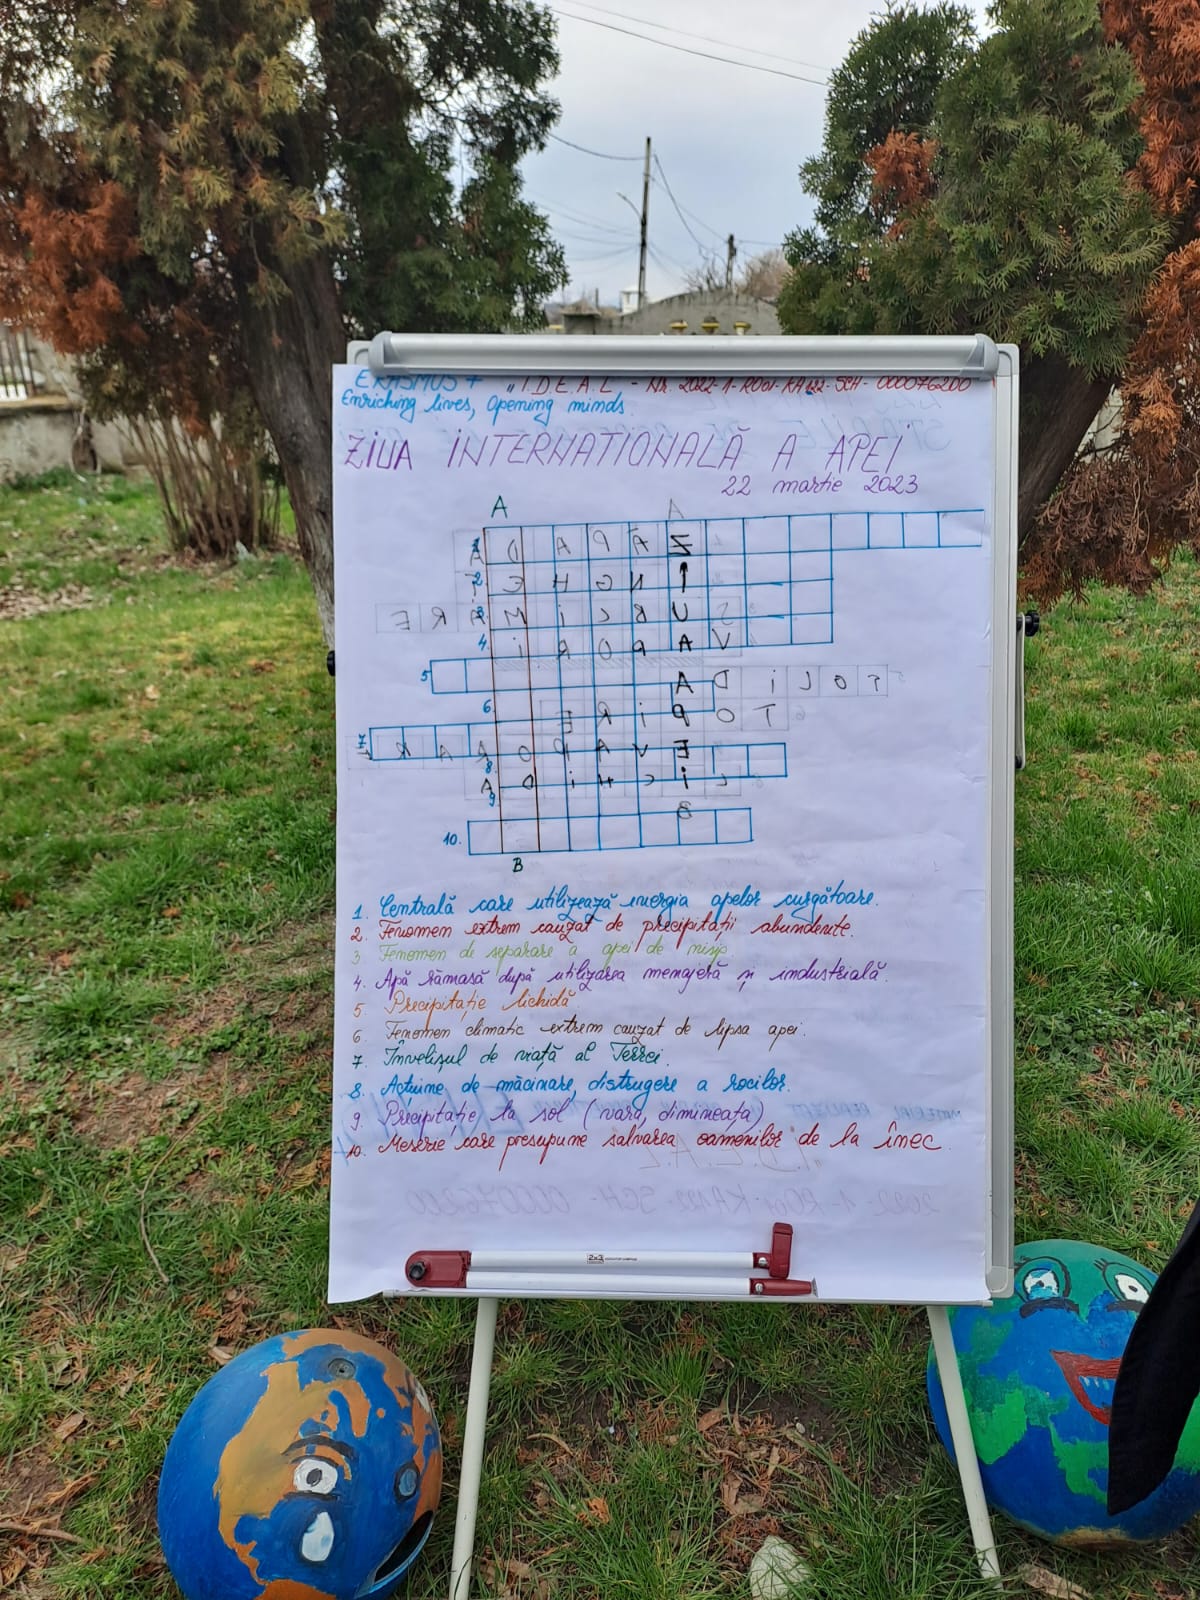 ERASMUS + „I.D.E.A.L - Nr. 2022-1-RO01-KA122-SCH-000076200
Enriching lives, Opening minds.
ZIUA INTERNAȚIONALĂ A APEI
22 martie 2023
A
1
2.
3
4.
5
6
7
8
9
10.
B
1. Centrală care utilizează energia apelor curgătoare.
2. Fenomen extrem cauzat de precipitații abundente.
3. Fenomen de separare a apei de nisip.
4. Apă rămasă după utilizarea menajeră și industrială.
5. Precipitație lichidă
6. Fenomen climatic extrem cauzat de lipsa apei.
7. Învelișul de viață al Terrei.
8. Acțiune de măcinare, distrugere a rocilor.
9. Precipitație la sol (vara, dimineața)
10. Meserie care presupune salvarea oamenilor de la înec.
2x3